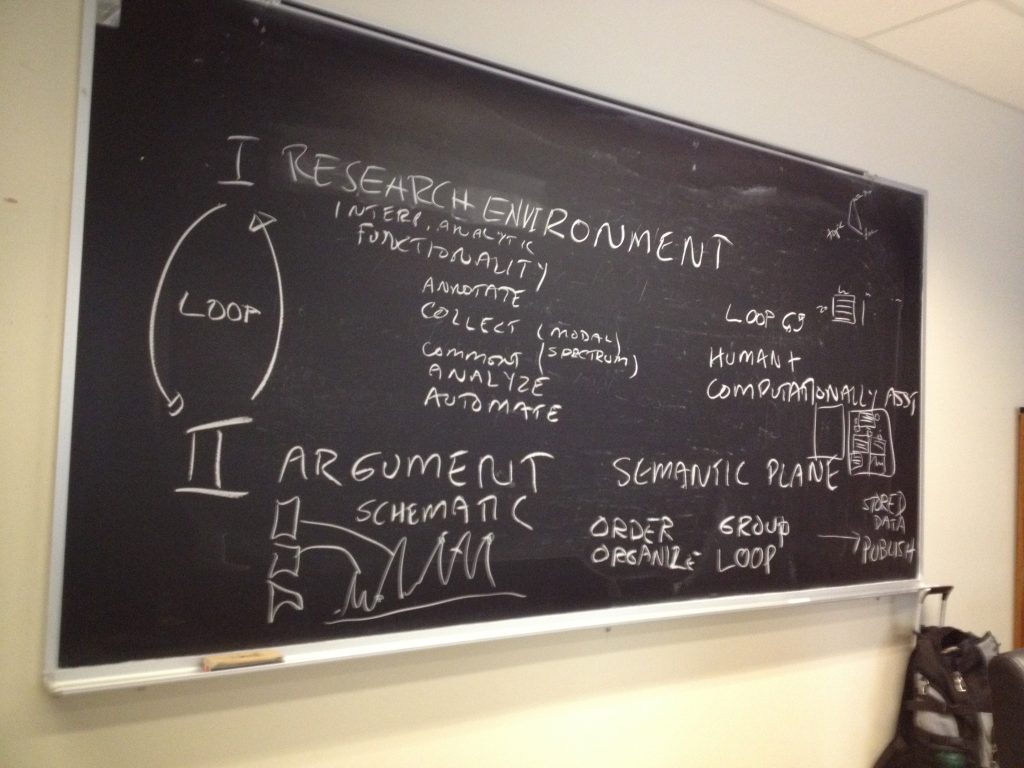 I RESEARCH ENVIRONMENT
INTERP, ANALYTIC
FUNCTIONALITY
LOOP
ANNOTATE
COLLECT (MODAL)
COMMENT (SPECTRUM)
ANALYZE
AUTOMATE
LOOP
HUMAN +
COMPUTATIONALLY ASST
II ARGUMENT
SCHEMATIC
SEMANTIC PLANE
ORDER GROUP
ORGANIZE LOOP
STORED
DATA
PUBLISH